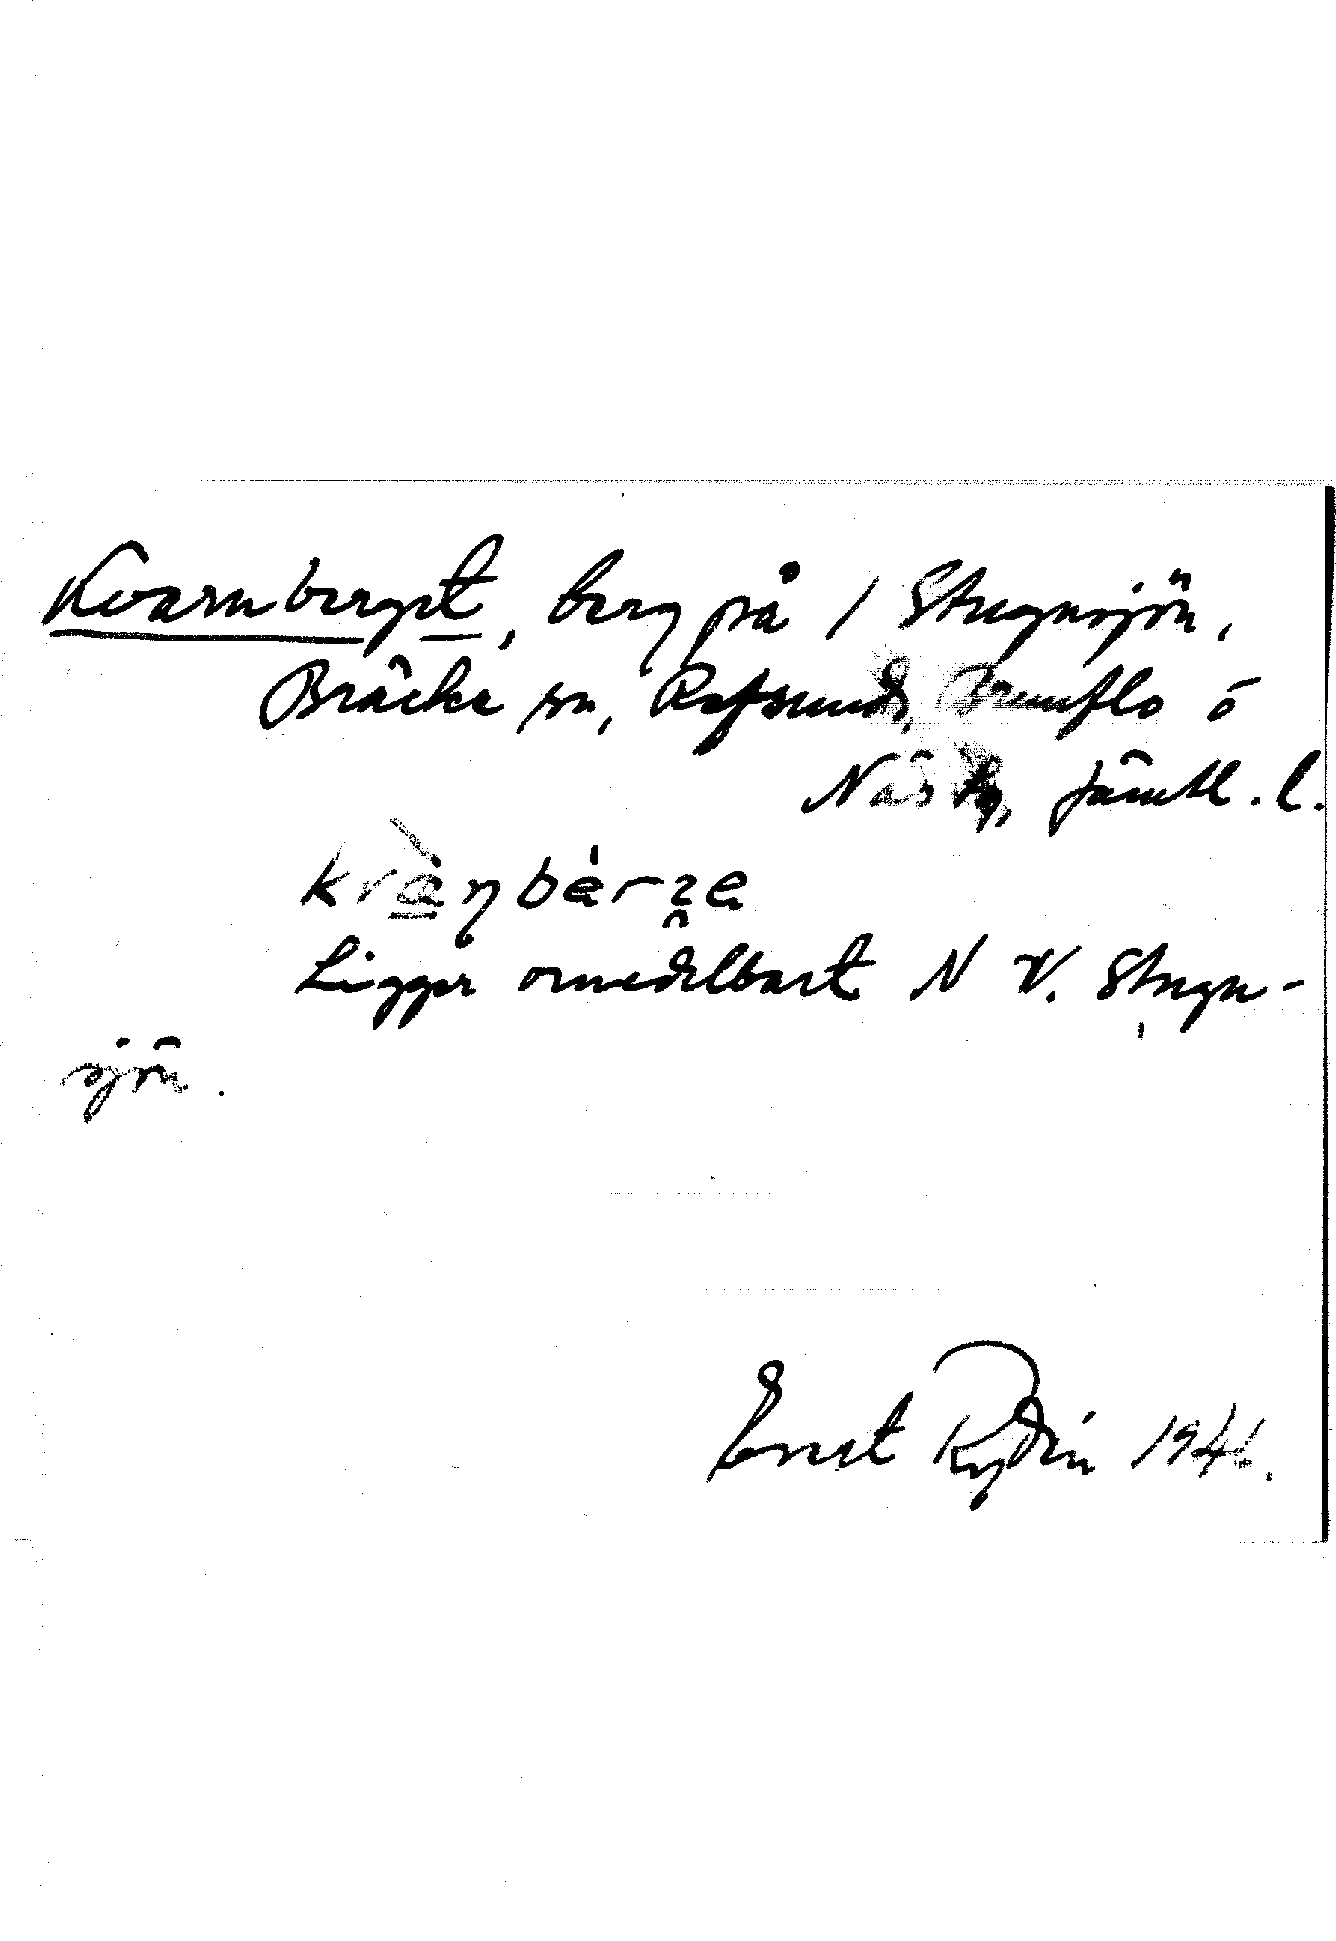 Kvarnberget, berg på 1 Stugusjön,
Bräcke sn, Refsund, Brunflo o
Näs tg, Jämtl. l.
Ligger omedelbart N V. Stugu-
sjön.
Ernst Rydin 1946.